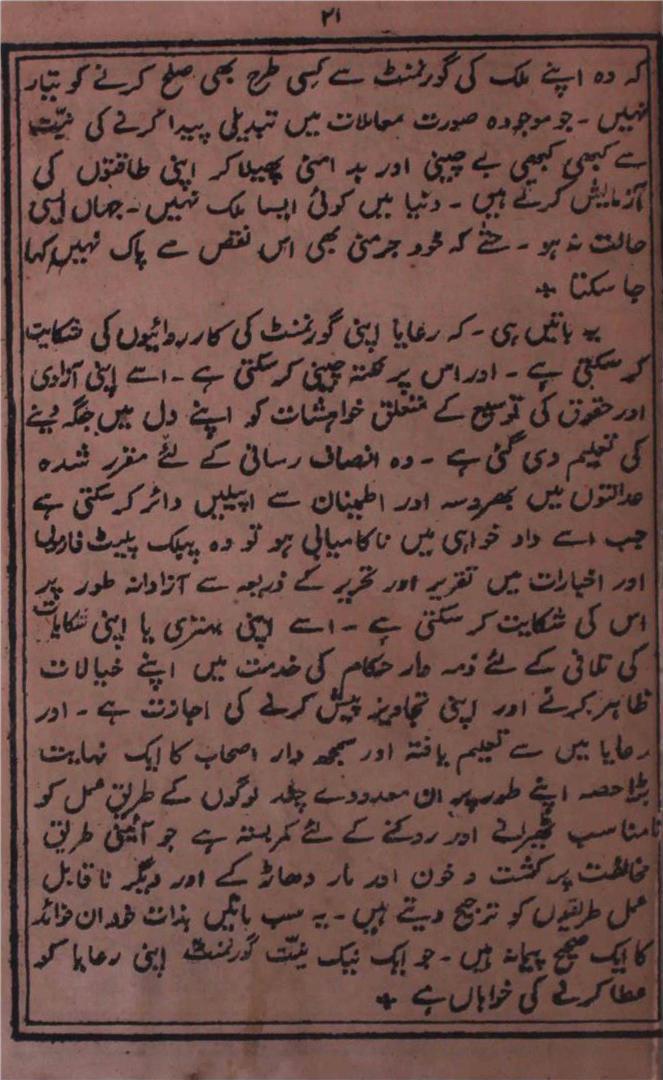 ۲۱
کہ وہ اپنے ملک کی گورنمنٹ سے کسی طرح بھی صلح کرنے کو تیار
نہیں ۔ جو موجودہ صورت معاملات میں تبدیلی پیدا کرنے کی نیّت
سے کبھی کبھی بے چینی اور بد امنی پھیلا کر اپنی طاقتوں کی
آزمایش کرتے ہیں ۔ دنیا میں کوئی ایسا ملک نہیں ۔ جہاں ایسی
حالت نہ ہو ۔ حتے کہ خود جرمنی بھی اس نقص سے پاک نہیں کہا
جا سکتا +
یہ باتیں ہی ۔ کہ رعایا اپنی گورنمنٹ کی کارروائیوں کی شکایت
کر سکتی ہے ۔ اور اس پر نکتہ چینی کر سکتی ہے ۔ اسے اپنی آزادی
اور حقوق کی توسیع کے متعلق خواہشات کو اپنے دل میں جگہ دینے
کی تعلیم دی گئی ہے ۔ وہ انصاف رسانی کے لئے مقرر شدہ
عدالتوں میں بھروسہ اور اطمینان سے اپیلیں دائر کر سکتی ہے
جب اسے داد خواہی میں ناکامیابی ہو تو وہ پبلک پلیٹ فارموں
اور اخبارات میں تقریر اور تحریر کے ذریعہ سے آزادانہ طور پر
اس کی شکایت کر سکتی ہے ۔ اسے اپنی بہتری یا اپنی شکایات
کی تلافی کے لئے ذمہ دار حکام کی خدمت میں اپنے خیالات
ظاہر کرنے اور اپنی تجاویز پیش کرنے کی اجازت ہے ۔ اور
رعایا میں سے تعلیم یافتہ اور سمجھ دار اصحاب کا ایک نہایت
بڑا حصہ اپنے طور پر ان معدودے چند لوگوں کے طریق عمل کو
نامناسب ٹھیرانے اور روکنے کے لئے کمربستہ ہے جو آئینی طریق
مخالفت پر کشت و خون اور مار دھاڑ کے اور دیگر ناقابل
عمل طریقوں کو ترجیح دیتے ہیں ۔ یہ سب باتیں بذات خود ان فوائد
کا ایک صحیح پیمانہ ہیں ۔ جو ایک نیک نیّت گورنمنٹ اپنی رعایا کو
عطا کرنے کی خواہاں ہے +